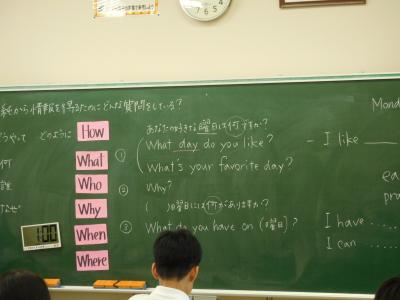 純から情報を得るためにどんな質問をしている?
どのように
How
What
Who
Why
When
Where
100
あなたの好きな曜日は何ですか?
① What day do you like?
What's your favorite day?
② Why?
( )曜日には何がありますか?
③ What do you have on (曜日)?
Mond
- I like
ea
pra
I have ……
I can ……
7 6 5 4